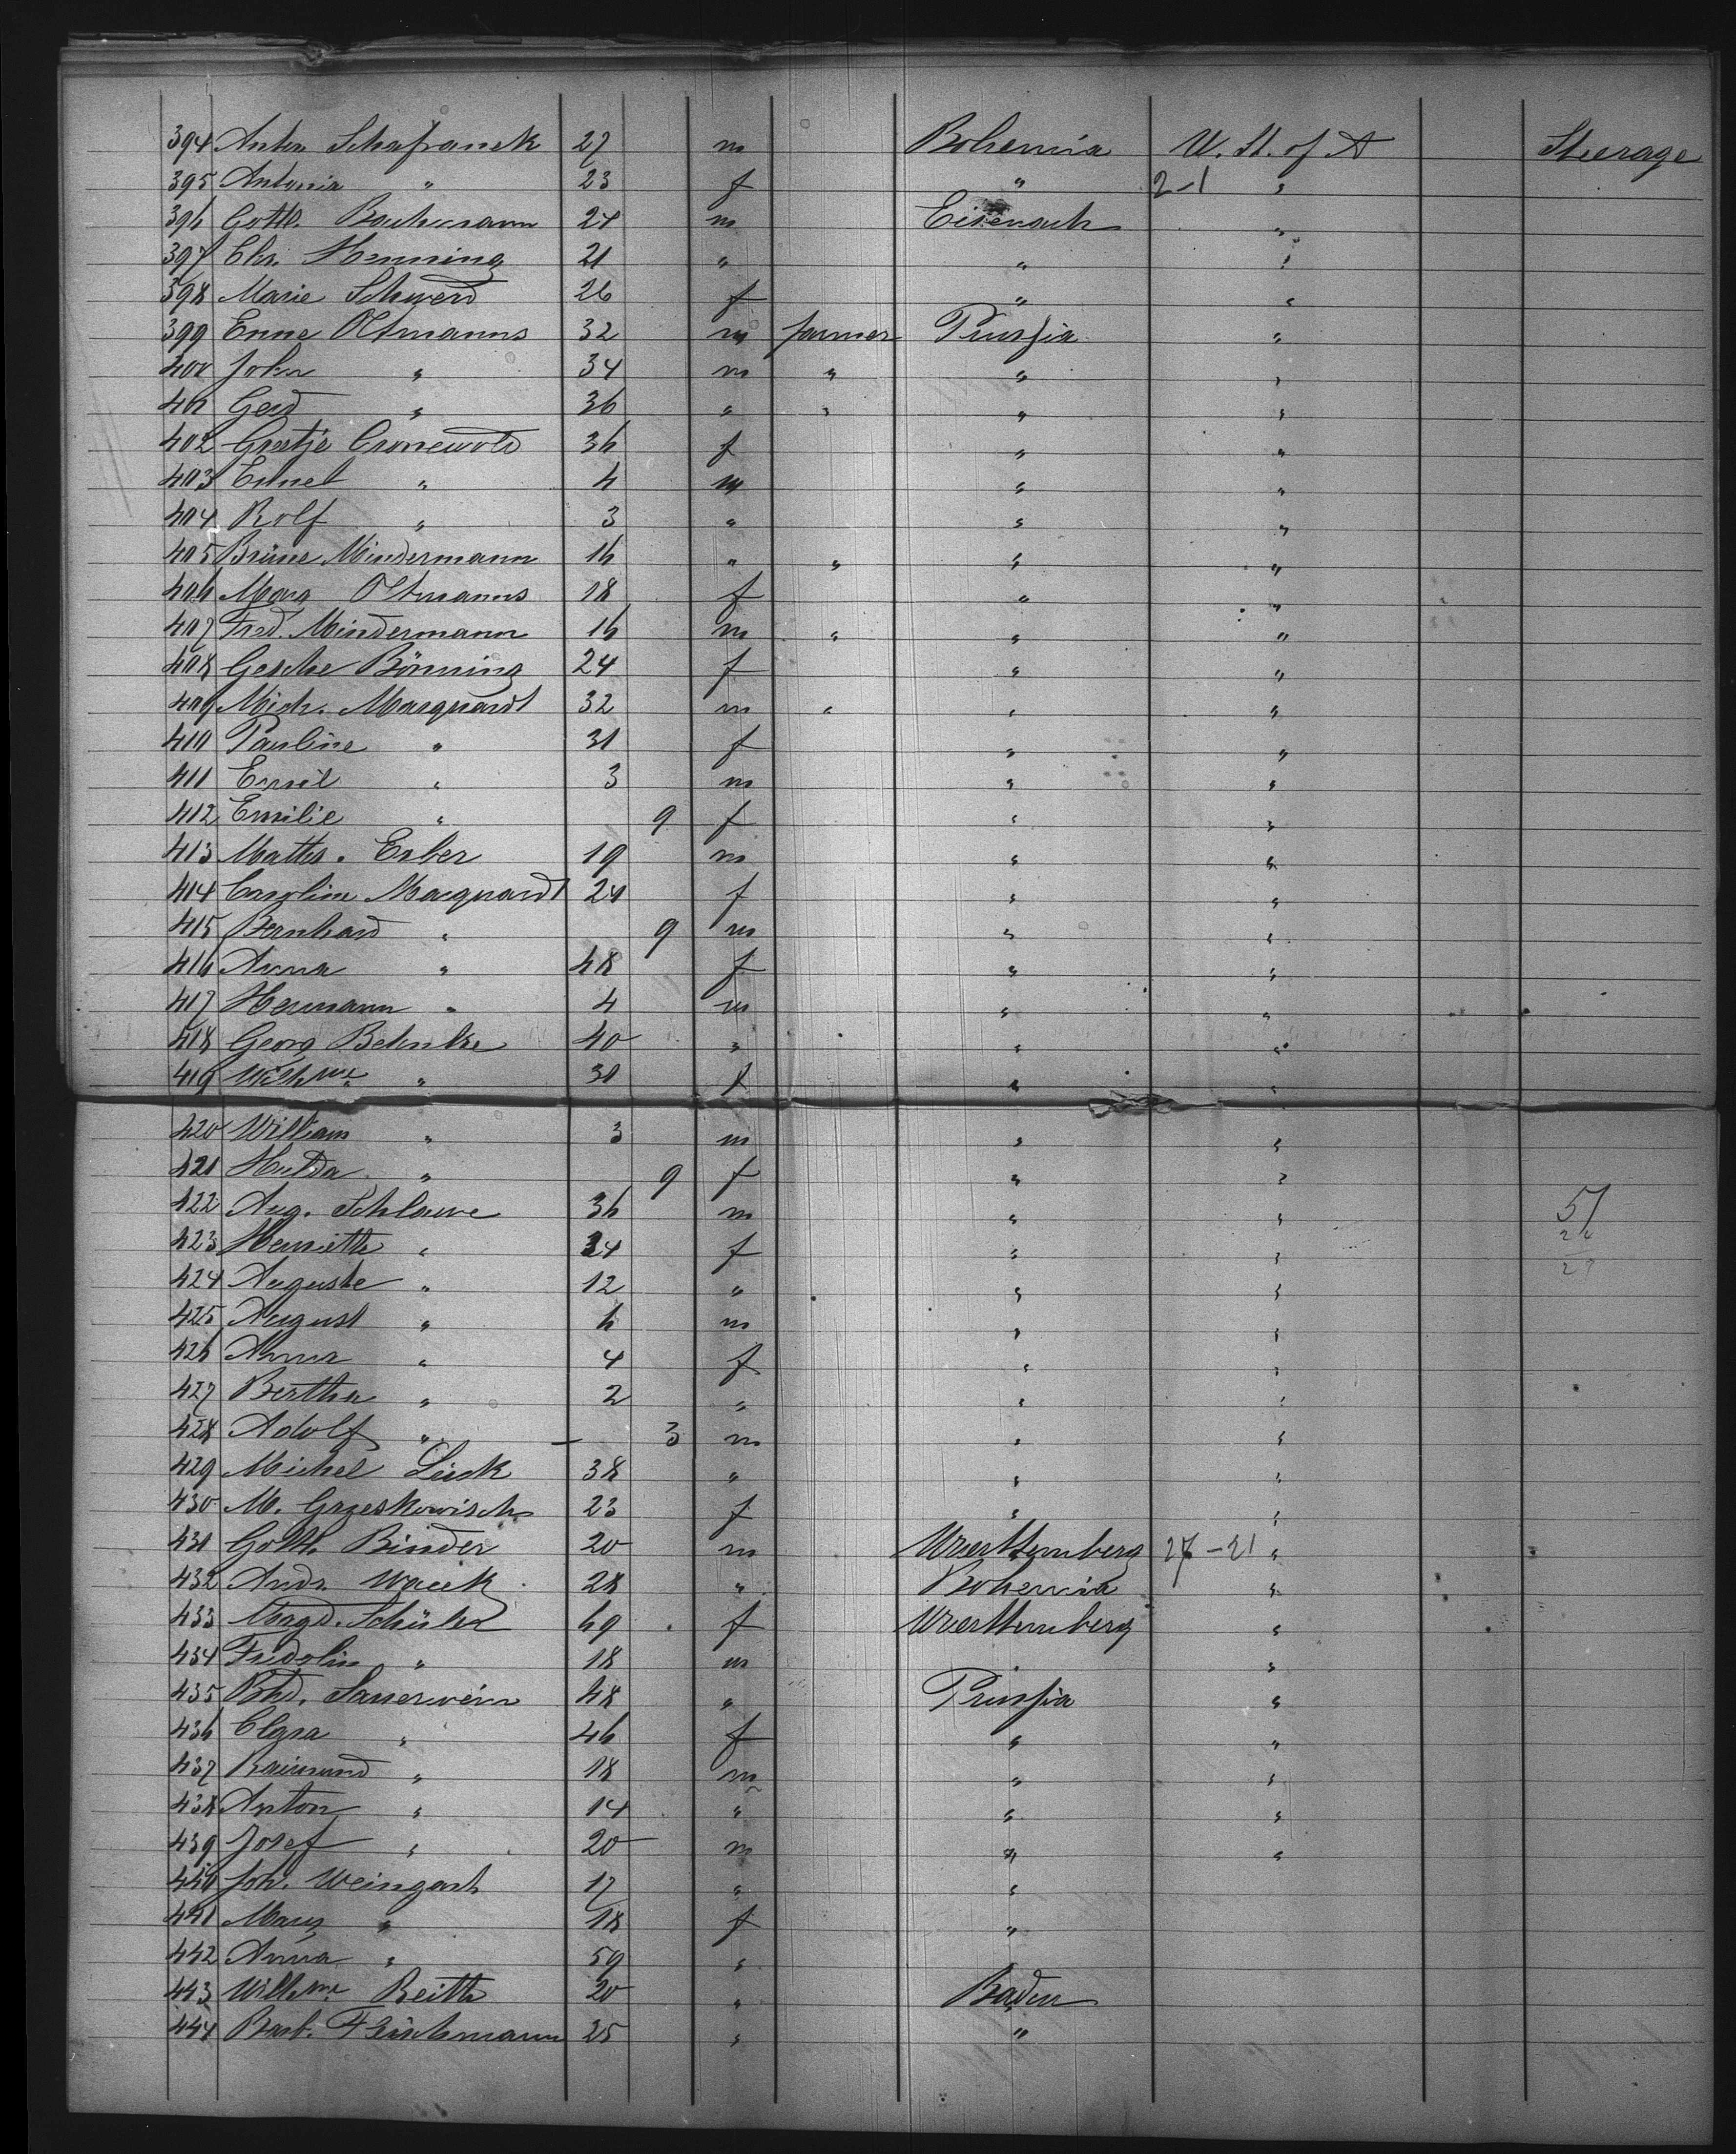 394 Anton Schafranek 27 m Bohemia U. St. of A Steerage
395 Antonia " 23 f " 2-1 "
396 Gottl. Bachmann 24 m Eisenach "
397 Chr. Henning 21 " " "
398 Marie Schwerd 26 f " "
399 Enne Oltmanns 32 m farmer Prussia "
400 John " 34 m " " "
401 Gerd " 36 " " " "
402 Gretje Cronewold 36 f " "
403 Emmel " 4 m " "
404 Rolf " 3 " " "
405 Brüne Mindermann 16 " " " "
406 Marg Oltmanns 18 f " "
407 Fred. Mindermann 16 m " " "
408 Gesche Bönning 24 f " "
409 Mich. Marquardt 32 m " " "
410 Pauline " 31 f " "
411 Emil " 3 m " "
412 Emilie " 9 f " "
413 Matths. Erber 19 m " "
414 Caroline Marquardt 24 f " "
415 Bernhard " 9 m " "
416 Anna " 48 f " "
417 Hermann " 4 m " "
418 Georg Behnke 40 " " "
419 Wilhme " 30 f " "
420 William " 3 m " "
421 Hulda " 9 f " "
422 Aug. Schlawe 36 m " " 51
423 Henriette " 34 f " "
424 Auguste " 12 " " "
425 August " 6 m " "
426 Anna " 4 f " "
427 Bertha " 2 " " "
428 Adolf " — 3 m " "
429 Michel Lück 38 " " "
430 M. Grzeskowisch 23 f " "
431 Gottl. Binder 20 m Wuerttemberg 27-21 "
432 Andr. Wacek 28 " Bohemia "
433 Magd. Schüler 69 f Wuerttemberg "
434 Fridolin " 18 m " "
435 Bhd. Sauerwein 48 " Prussia "
436 Clara " 46 f " "
437 Raimund " 18 m " "
438 Anton " 14 " " "
439 Josef " 20 m " "
440 Joh. Weingart 17 " "
441 Mary " 18 f "
442 Anna " 59 "
443 Wilhme Reith 20 " Baden
444 Barb. Fleischmann 25 " "